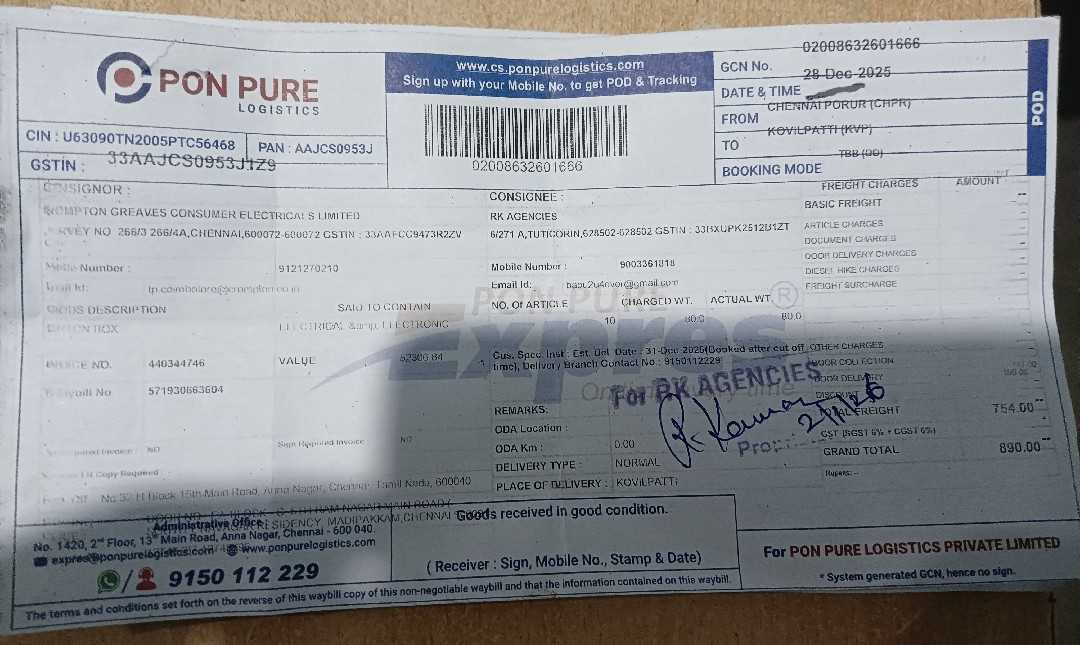 PON PURE
LOGISTICS
www.cs.ponpurelogistics.com
Sign up with your Mobile No. to get POD & Tracking
02008632601666
GCN No. 02008632601666
DATE & TIME 28-Dec-2025
FROM CHENNAI PORUR (CHPR)
TO KOVILPATTI (KVP)
BOOKING MODE TBB (DD)
POD
CIN : U63090TN2005PTC56468
PAN : AAJCS0953J
GSTIN : 33AAJCS0953J1Z9
CONSIGNOR :
CROMPTON GREAVES CONSUMER ELECTRICALS LIMITED
SURVEY NO 266/3 266/4A,CHENNAI,600072-600072 GSTIN :
Mobile Number : 9121270210
Email Id:
CONSIGNEE :
RK AGENCIES
6/271 A,TUTICORIN,628502-628502 GSTIN : 33BXUPK2512B1ZT
Mobile Number : 9003361818
Email Id:
FREIGHT CHARGES AMOUNT
BASIC FREIGHT
ARTICLE CHARGES
DOCUMENT CHARGES
DOOR DELIVERY CHARGES
DIESEL HIKE CHARGES
FREIGHT SURCHARGE
OTHER CHARGES
DOOR COLLECTION
DOOR DELIVERY
DISCOUNT
TOTAL FREIGHT 754.00
GST (SGST 6% + CGST 6%)
GRAND TOTAL 890.00
Rupees:
GOODS DESCRIPTION SAID TO CONTAIN
CARTON BOX ELECTRICAL &amp; ELECTRONIC
NO. Of ARTICLE CHARGED WT. ACTUAL WT.
10 80.0 80.0
PON PURE
Expres
®
INVOICE NO. 440344746 VALUE 52306.84
Ewaybill No 571930663604
Cus. Spec. Inst : Est. Del. Date : 31-Dec-2025(Booked after cut off
time), Delivery Branch Contact No : 9150112229
REMARKS:
ODA Location :
ODA Km : 0.00
DELIVERY TYPE : NORMAL
PLACE OF DELIVERY : KOVILPATTI
For RK AGENCIES
R. Kannan
Prop
Sign Required Invoice NO
NO
LR Copy Required :
No 32 H Block 15th Main Road, Anna Nagar, Chennai, Tamil Nadu, 600040
RESIDENCY, MADIPAKKAM,CHENNAI
Administrative Office
No. 1420, 2nd Floor, 13th Main Road, Anna Nagar, Chennai - 600 040.
expres@ponpurelogistics.com www.ponpurelogistics.com
/ 9150 112 229
Goods received in good condition.
( Receiver : Sign, Mobile No., Stamp & Date)
For PON PURE LOGISTICS PRIVATE LIMITED
* System generated GCN, hence no sign.
The terms and conditions set forth on the reverse of this waybill copy of this non-negotiable waybill and that the information contained on this waybill.